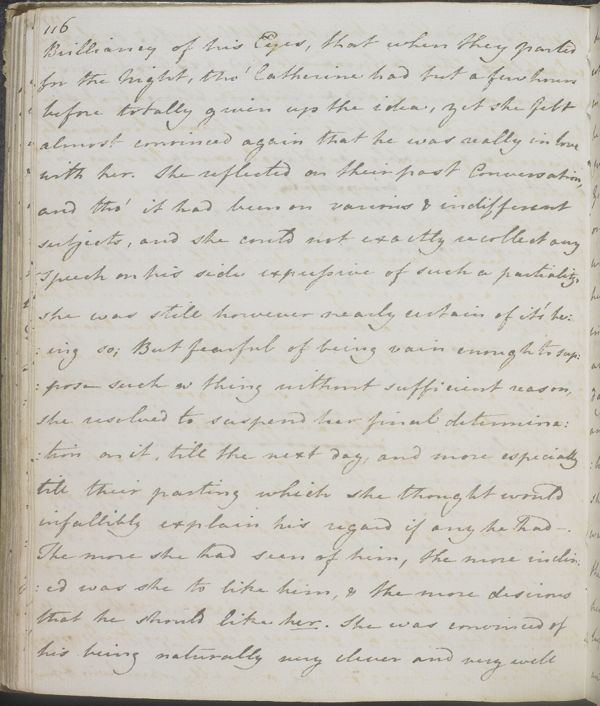 116
Brilliancy of his Eyes, that when they parted
for the Night, tho' Catherine had but a few hours
before totally given up the idea, yet she felt
almost convinced again that he was really in love
with her. She reflected on their past Conversation,
and tho' it had been on various & indifferent
subjects, and she could not exactly recollect any
Speech on his side expressive of such a partiality,
she was still however nearly certain of it's be:
:ing so; But fearful of being vain enough to sup:
:pose such a thing without sufficient reason,
she resolved to suspend her final determina:
:tion on it, till the next day, and more especially
till their parting which she thought would
infallibly explain his regard if any he had—.
The more she had seen of him, the more inclin:
:ed was she to like him, & the more desirous
that he should like her. She was convinced of
his being naturally very clever and very well